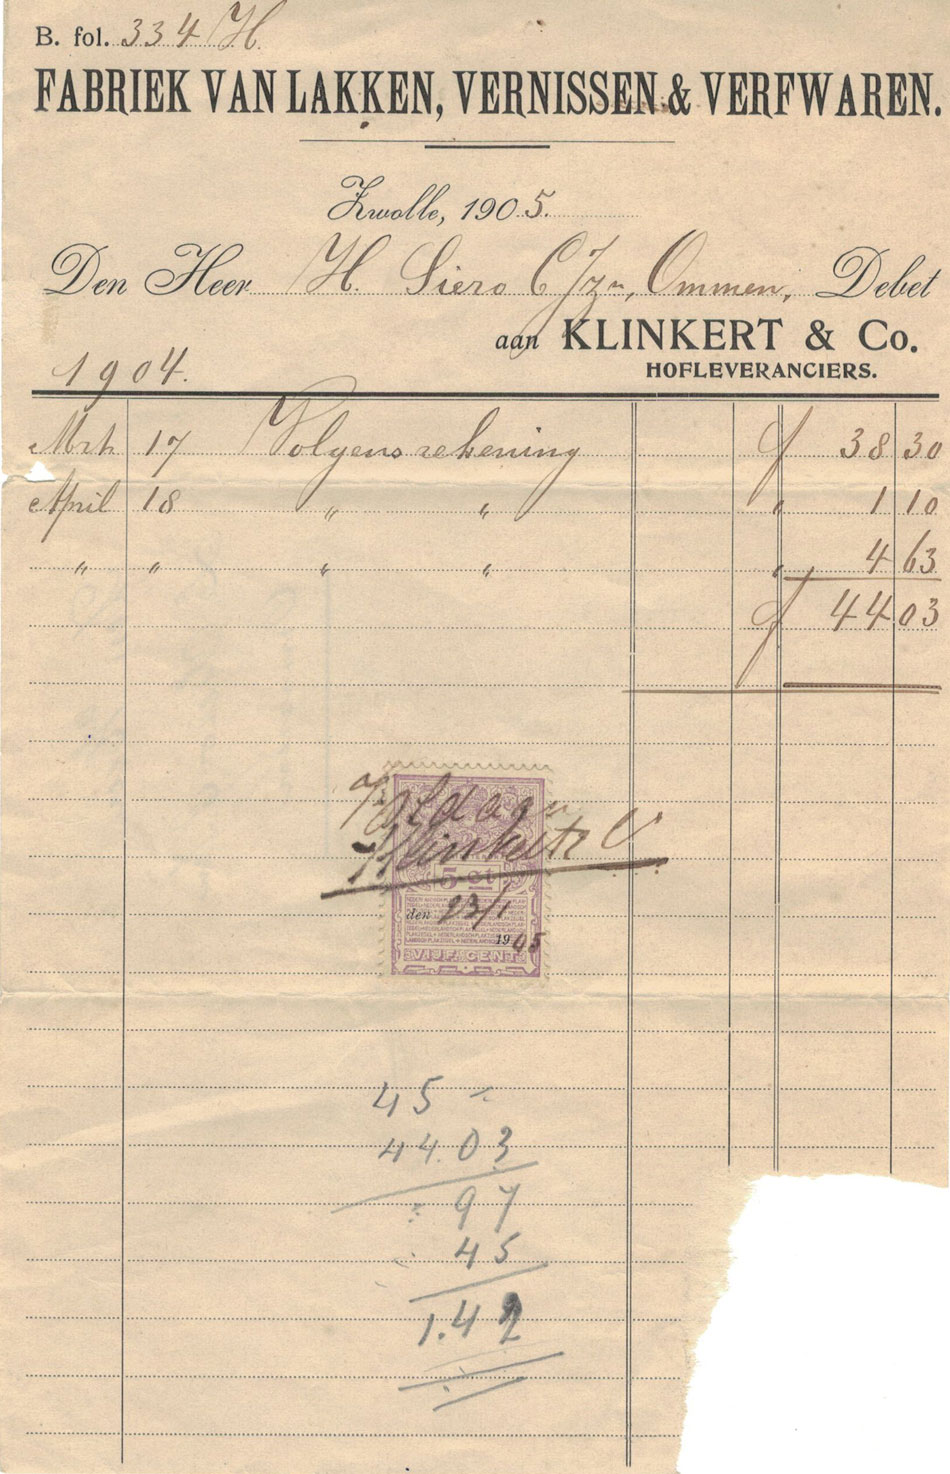 B. fol. 334 H.
FABRIEK VAN LAKKEN, VERNISSEN & VERFWAREN.
Zwolle, 1905.
Den Heer H. Siero CJzn, Ommen, Debet
aan KLINKERT & Co.
HOFLEVERANCIERS.
1904.
Mrt. 17 Volgens rekening f 38 30
April 18 " " " 1 10
" " " " " 4 63
f 44 03
Voldaan
Klinkert & C
5 ct
den 23/1
1905
VIJF CENT
45 -
44.03
: 97
: 45
1.42